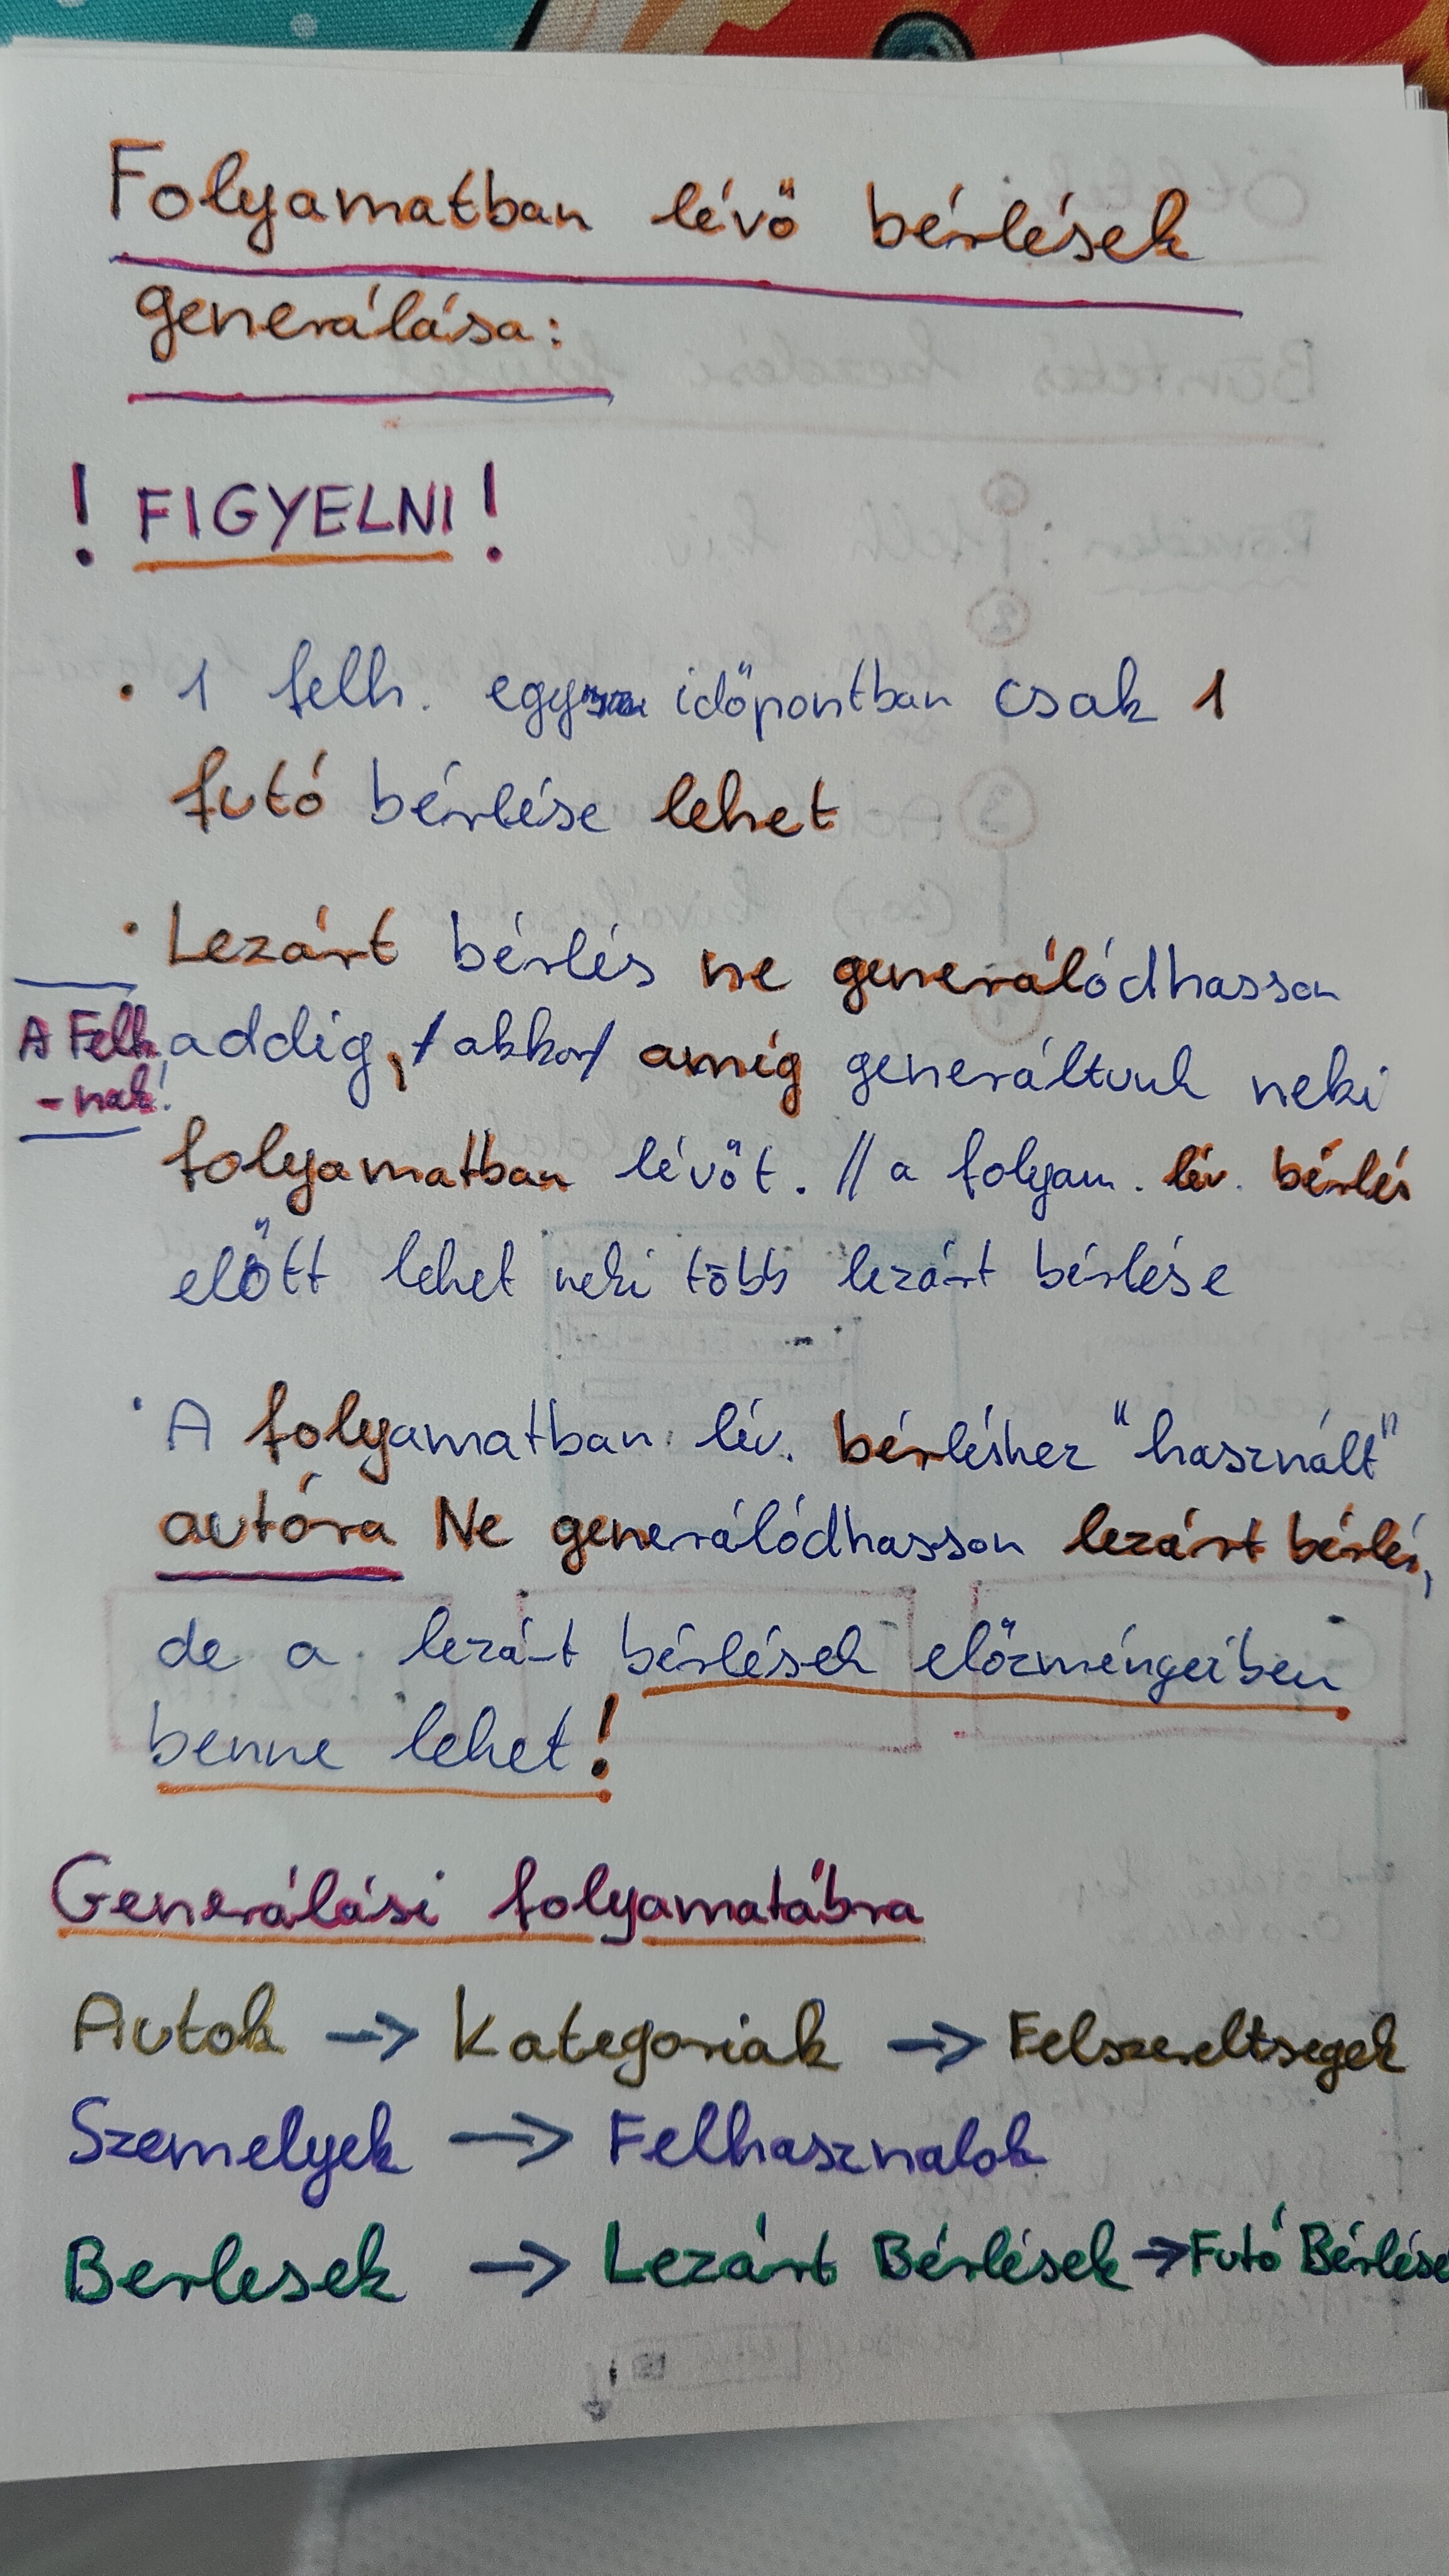 Folyamatban lévő bérlések
generálása:
! FIGYELNI !
• 1 felh. egy időpontban csak 1
futó bérlése lehet
• Lezárt bérlés ne generálódhasson
A Felh. addig, /akkor/ amíg generáltunk neki
-nak!
folyamatban lévőt. // a folyam. lév. bérlés
előtt lehet neki több lezárt bérlése
• A folyamatban lév. bérléshez "használt"
autóra Ne generálódhasson lezárt bérlés,
de a lezárt bérlések előzményeiben
benne lehet!
Generálási folyamatábra
Autok -> Kategoriak -> Felszereltsegek
Szemelyek -> Felhasznalok
Berlesek -> Lezárt Bérlések -> Futó Bérlése